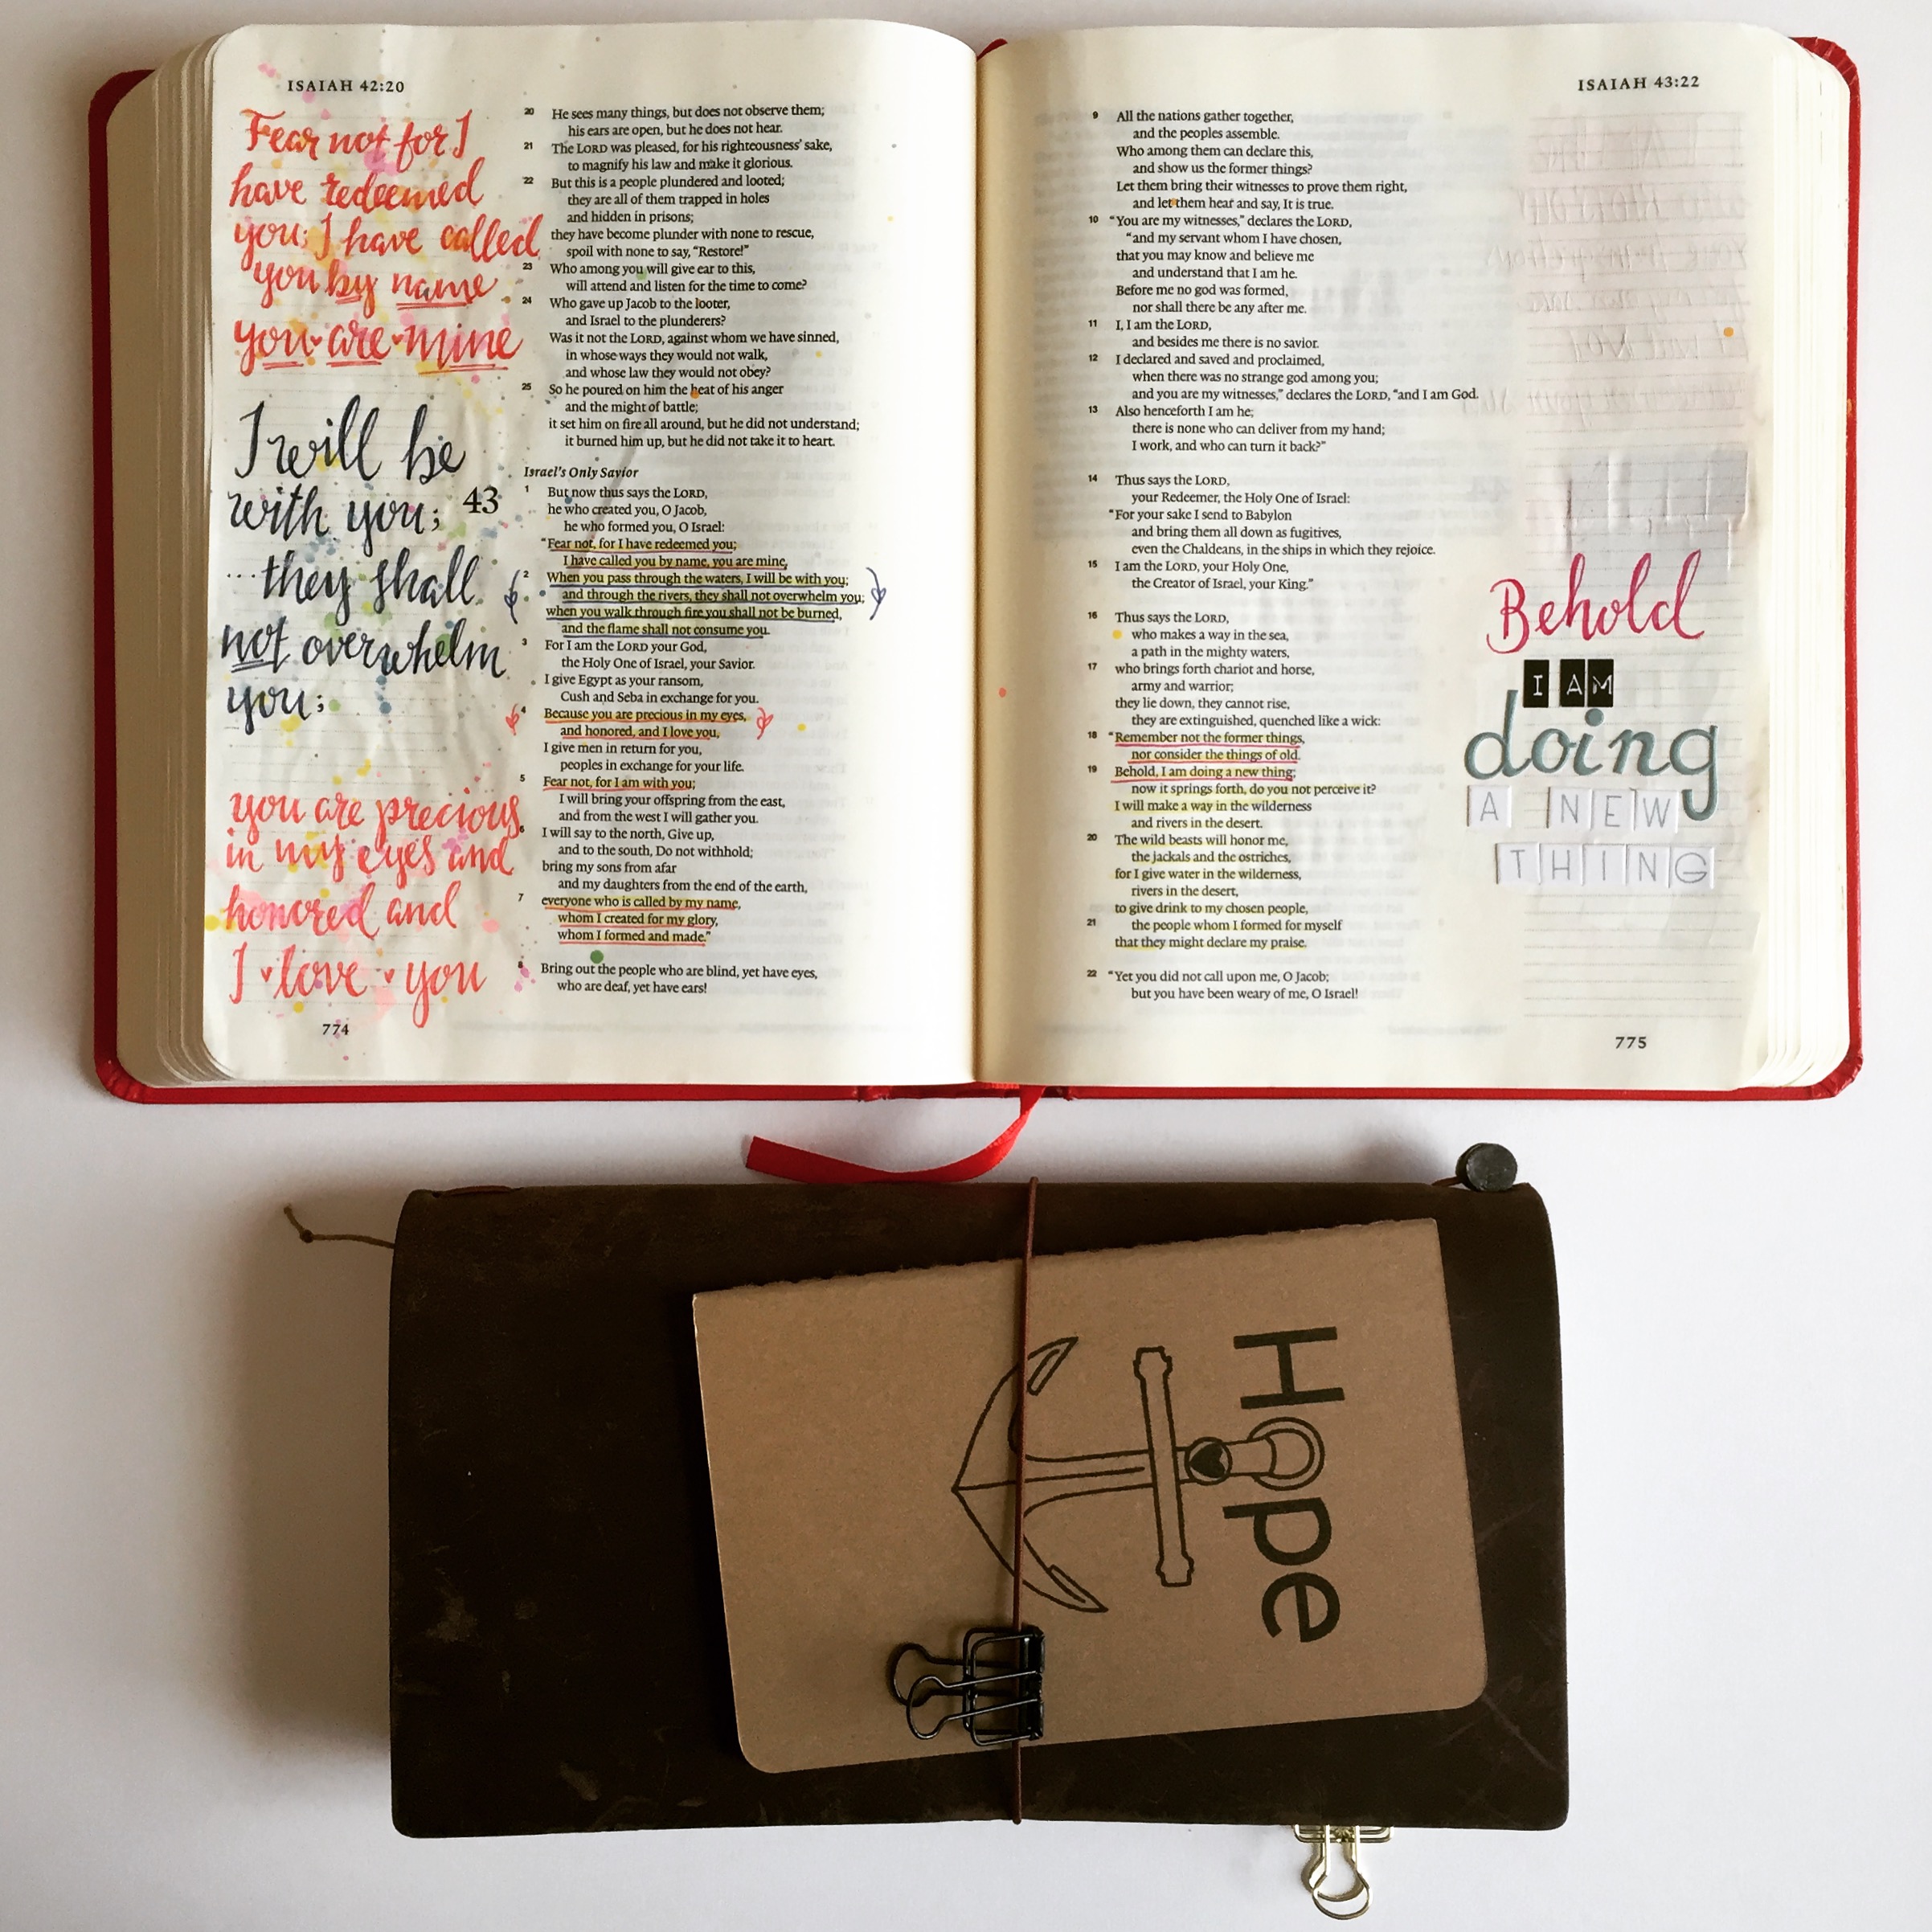 ISAIAH 42:20
Fear not for I
have redeemed
you; I have called
you by name
you are mine
I will be
with you;
...they shall
not overwhelm
you;
you are precious
in my eyes and
honored and
I love you
20 He sees many things, but does not observe them;
his ears are open, but he does not hear.
21 The LORD was pleased, for his righteousness' sake,
to magnify his law and make it glorious.
22 But this is a people plundered and looted;
they are all of them trapped in holes
and hidden in prisons;
they have become plunder with none to rescue,
spoil with none to say, "Restore!"
23 Who among you will give ear to this,
will attend and listen for the time to come?
24 Who gave up Jacob to the looter,
and Israel to the plunderers?
Was it not the LORD, against whom we have sinned,
in whose ways they would not walk,
and whose law they would not obey?
25 So he poured on him the heat of his anger
and the might of battle;
it set him on fire all around, but he did not understand;
it burned him up, but he did not take it to heart.
Israel's Only Savior
43
1 But now thus says the LORD,
he who created you, O Jacob,
he who formed you, O Israel:
"Fear not, for I have redeemed you;
I have called you by name, you are mine.
2 When you pass through the waters, I will be with you;
and through the rivers, they shall not overwhelm you;
when you walk through fire you shall not be burned,
and the flame shall not consume you.
3 For I am the LORD your God,
the Holy One of Israel, your Savior.
I give Egypt as your ransom,
Cush and Seba in exchange for you.
4 Because you are precious in my eyes,
and honored, and I love you,
I give men in return for you,
peoples in exchange for your life.
5 Fear not, for I am with you;
I will bring your offspring from the east,
and from the west I will gather you.
6 I will say to the north, Give up,
and to the south, Do not withhold;
bring my sons from afar
and my daughters from the end of the earth,
7 everyone who is called by my name,
whom I created for my glory,
whom I formed and made."
8 Bring out the people who are blind, yet have eyes,
who are deaf, yet have ears!
774
ISAIAH 43:22
9 All the nations gather together,
and the peoples assemble.
Who among them can declare this,
and show us the former things?
Let them bring their witnesses to prove them right,
and let them hear and say, It is true.
10 "You are my witnesses," declares the LORD,
"and my servant whom I have chosen,
that you may know and believe me
and understand that I am he.
Before me no god was formed,
nor shall there be any after me.
11 I, I am the LORD,
and besides me there is no savior.
12 I declared and saved and proclaimed,
when there was no strange god among you;
and you are my witnesses," declares the LORD, "and I am God.
13 Also henceforth I am he;
there is none who can deliver from my hand;
I work, and who can turn it back?"
14 Thus says the LORD,
your Redeemer, the Holy One of Israel:
"For your sake I send to Babylon
and bring them all down as fugitives,
even the Chaldeans, in the ships in which they rejoice.
15 I am the LORD, your Holy One,
the Creator of Israel, your King."
16 Thus says the LORD,
who makes a way in the sea,
a path in the mighty waters,
17 who brings forth chariot and horse,
army and warrior;
they lie down, they cannot rise,
they are extinguished, quenched like a wick:
18 "Remember not the former things,
nor consider the things of old.
19 Behold, I am doing a new thing;
now it springs forth, do you not perceive it?
I will make a way in the wilderness
and rivers in the desert.
20 The wild beasts will honor me,
the jackals and the ostriches,
for I give water in the wilderness,
rivers in the desert,
to give drink to my chosen people,
21 the people whom I formed for myself
that they might declare my praise.
22 "Yet you did not call upon me, O Jacob;
but you have been weary of me, O Israel!
Behold
I AM
doing
A NEW
THING
775
Hope